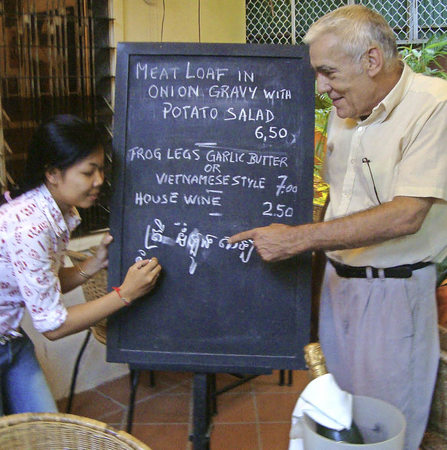 MEAT LOAF IN
ONION GRAVY WITH
POTATO SALAD
6,50
FROG LEGS GARLIC BUTTER
OR
VIETNAMESE STYLE 7.00
HOUSE WINE 2.50